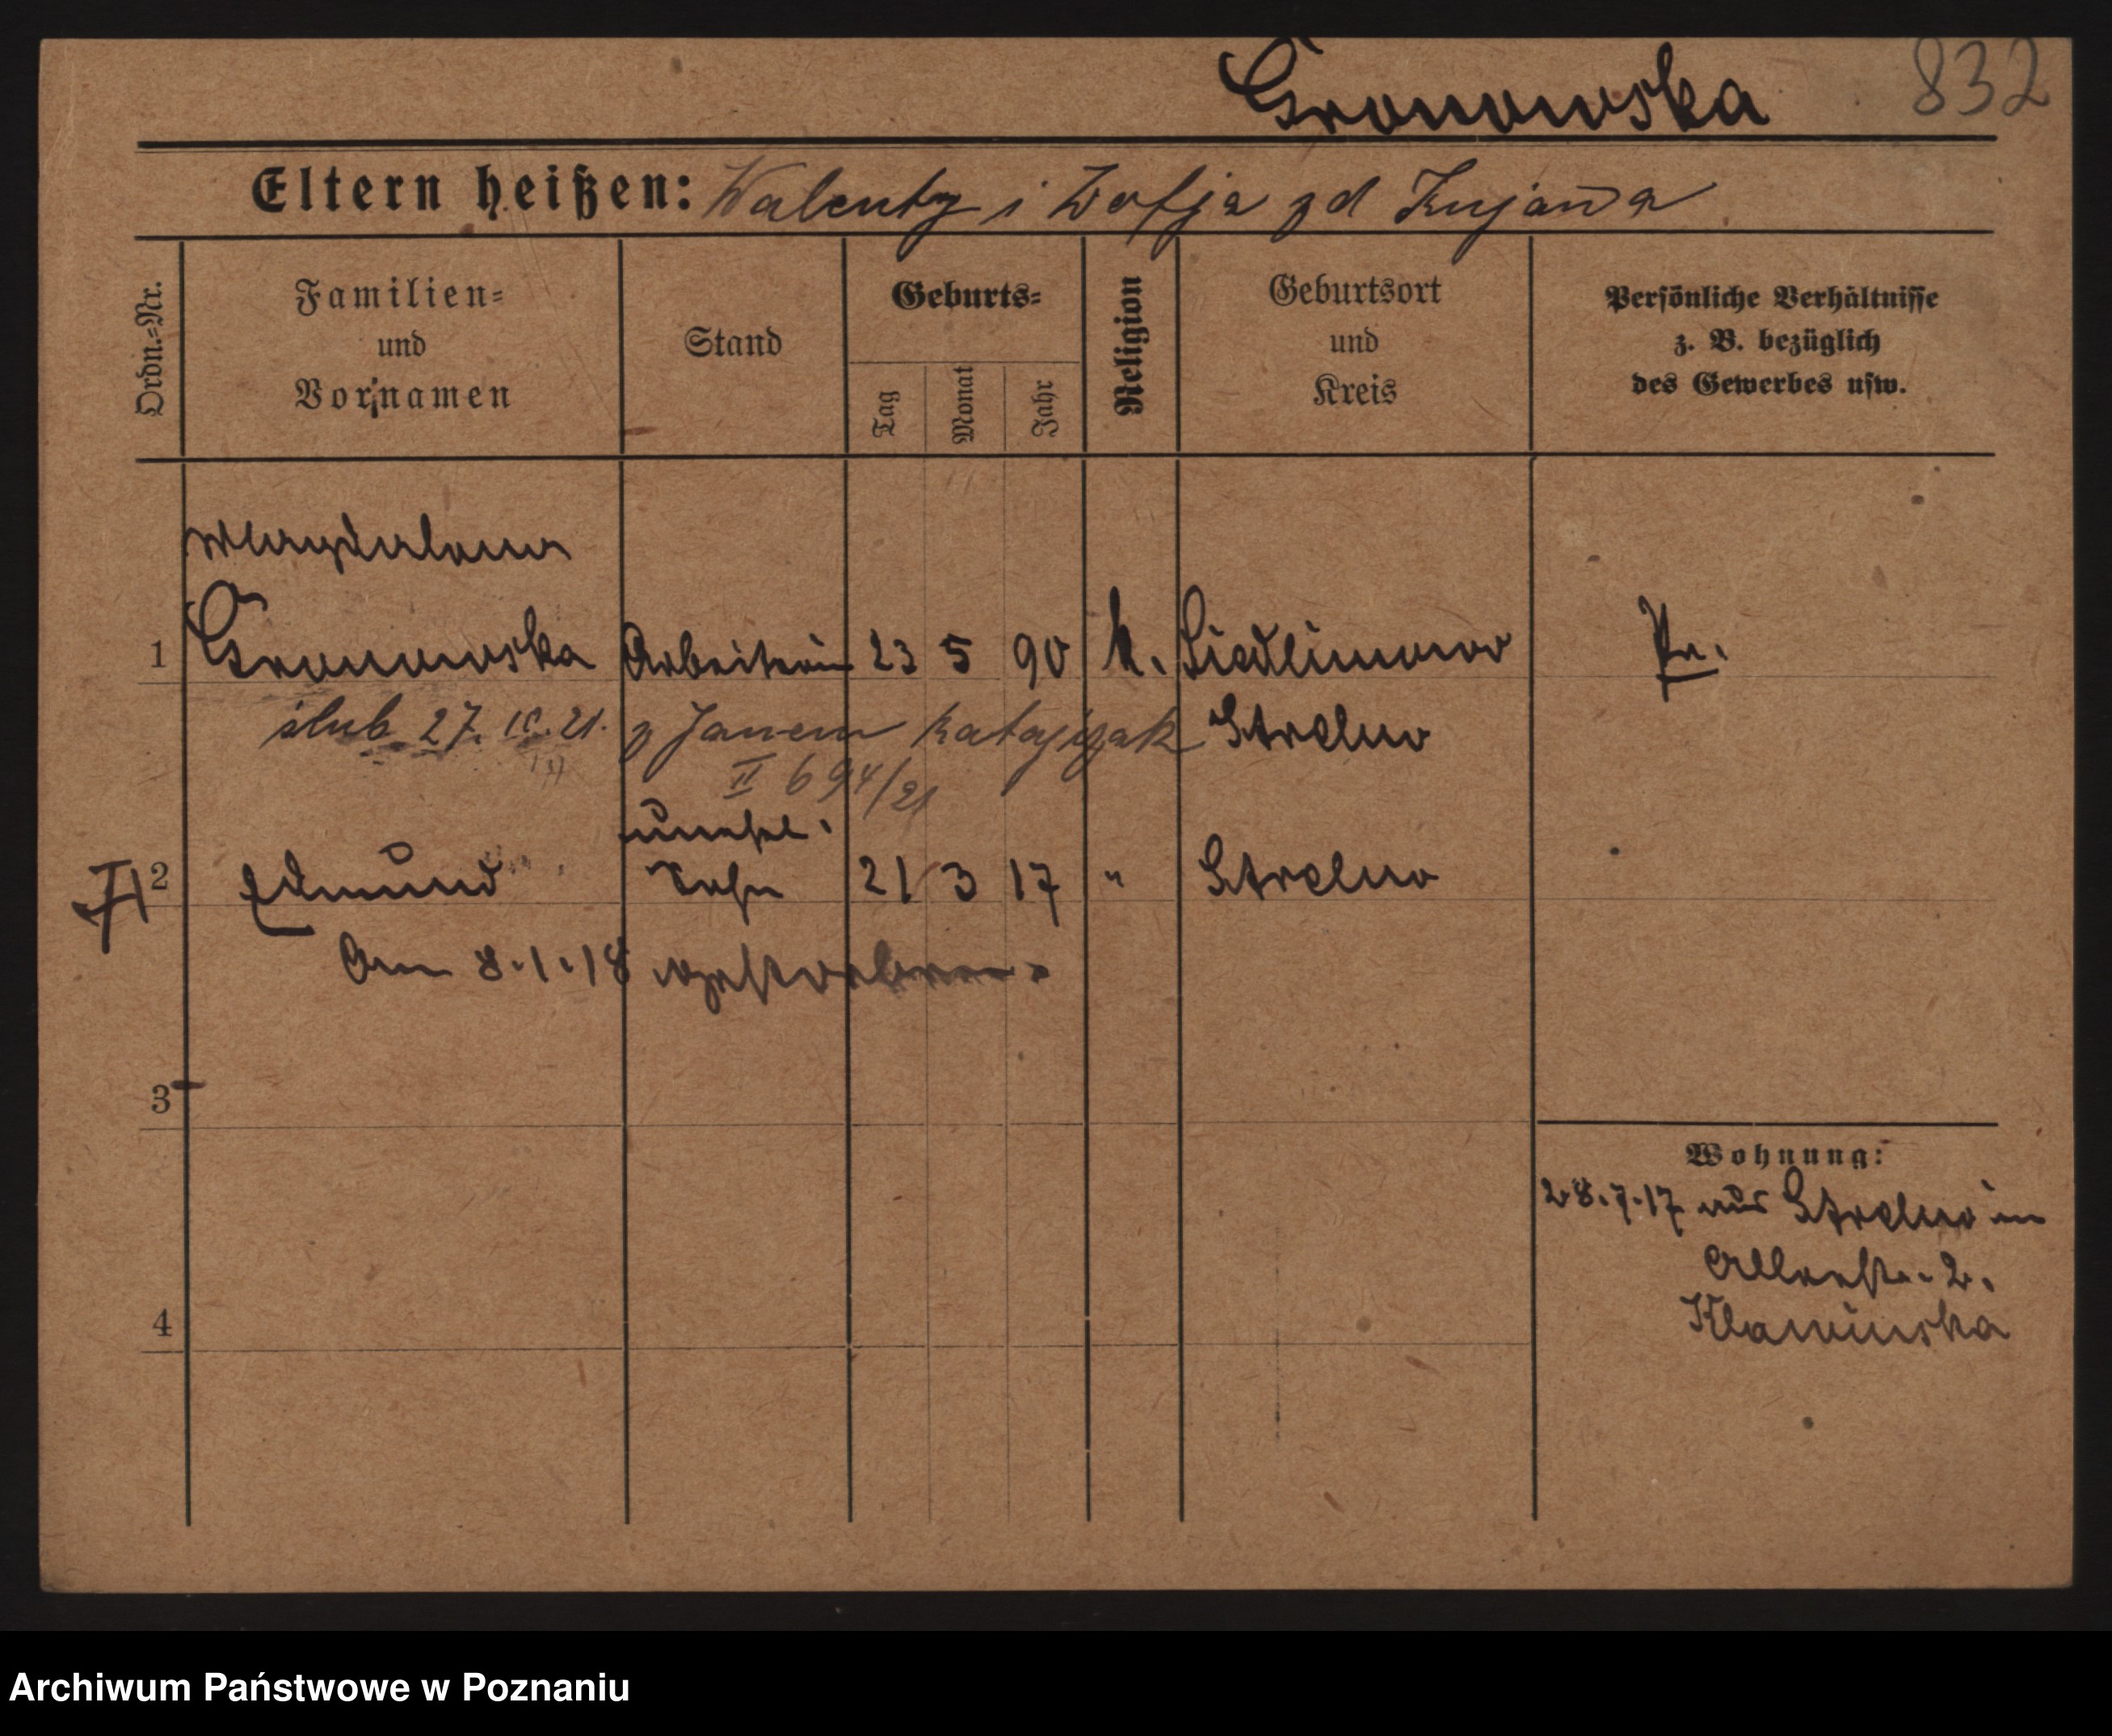 Gronowska 832
Eltern heißen: Walenty i Zofja zd Kujawa
Ordn.=Nr.
Familien=
und
Vornamen
Stand
Geburts=
Tag
Monat
Jahr
Religion
Geburtsort
und
Kreis
Persönliche Verhältnisse
z. B. bezüglich
des Gewerbes usw.
Magdalena
1 Gronowska Arbeiterin 23 5 90 k. Siedlimowo Pr.
ślub 27. 10. 21. z Janem Ratajczak Strelno
II 694/21
unehel.
2 Edmund Sohn 21 3 17 " Strelno
Am 8.1.18 gestorben.
3
4
Wohnung:
28.7.17 aus Strelno in
2.
Archiwum Państwowe w Poznaniu